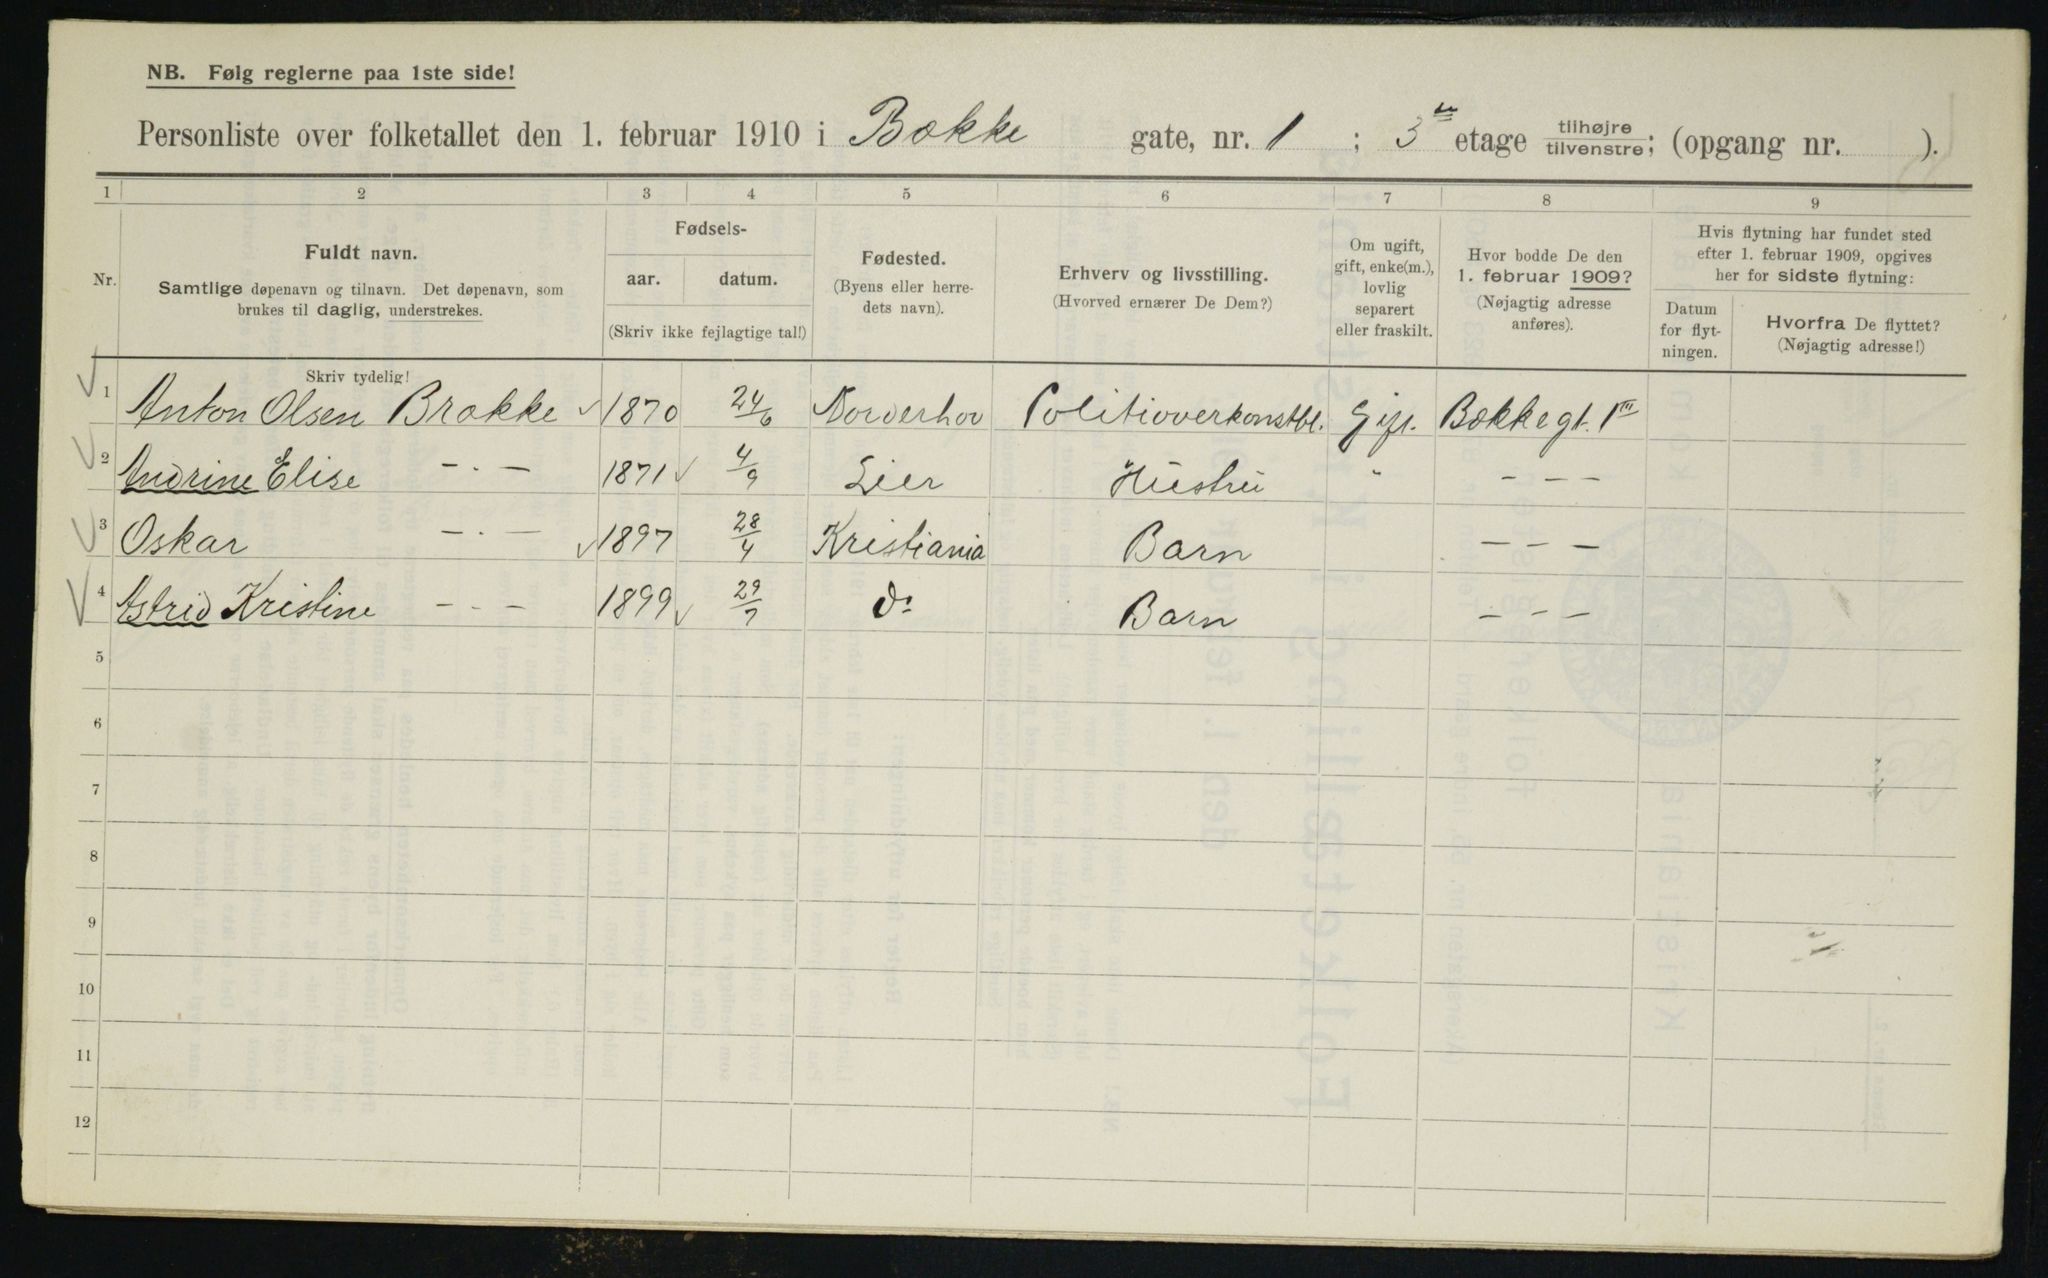 NB. Følg reglerne paa 1ste side!
Personliste over folketallet den 1. februar 1910 i Bekke gate, nr. 1 ; 3die etage tilhøjre tilvenstre; (opgang nr. ).
1 2 3 4 5 6 7 8 9
Nr.
Fuldt navn.
Samtlige døpenavn og tilnavn. Det døpenavn, som
brukes til daglig, understrekes.
Skriv tydelig!
Fødsels-
aar. datum.
(Skriv ikke fejlagtige tal!)
Fødested.
(Byens eller herre-
dets navn).
Erhverv og livsstilling.
(Hvorved ernærer De Dem?)
Om ugift,
gift, enke(m.),
lovlig
separert
eller fraskilt.
Hvor bodde De den
1. februar 1909?
(Nøjagtig adresse
anføres).
Hvis flytning har fundet sted
efter 1. februar 1909, opgives
her for sidste flytning:
Datum
for flyt-
ningen.
Hvorfra De flyttet?
(Nøjagtig adresse!)
1 Anton Olsen Brække 1870 24/6 Norderhov Politioverkonstbl. Gift. Bekkegt. 1 III
2 Andrine Elise – · – 1871 4/9 Lier Hustru " – – –
3 Oskar – · – 1897 28/4 Kristiania Barn – – –
4 Astrid Kristine – · – 1899 29/7 do Barn – – –
5
6
7
8
9
10
11
12